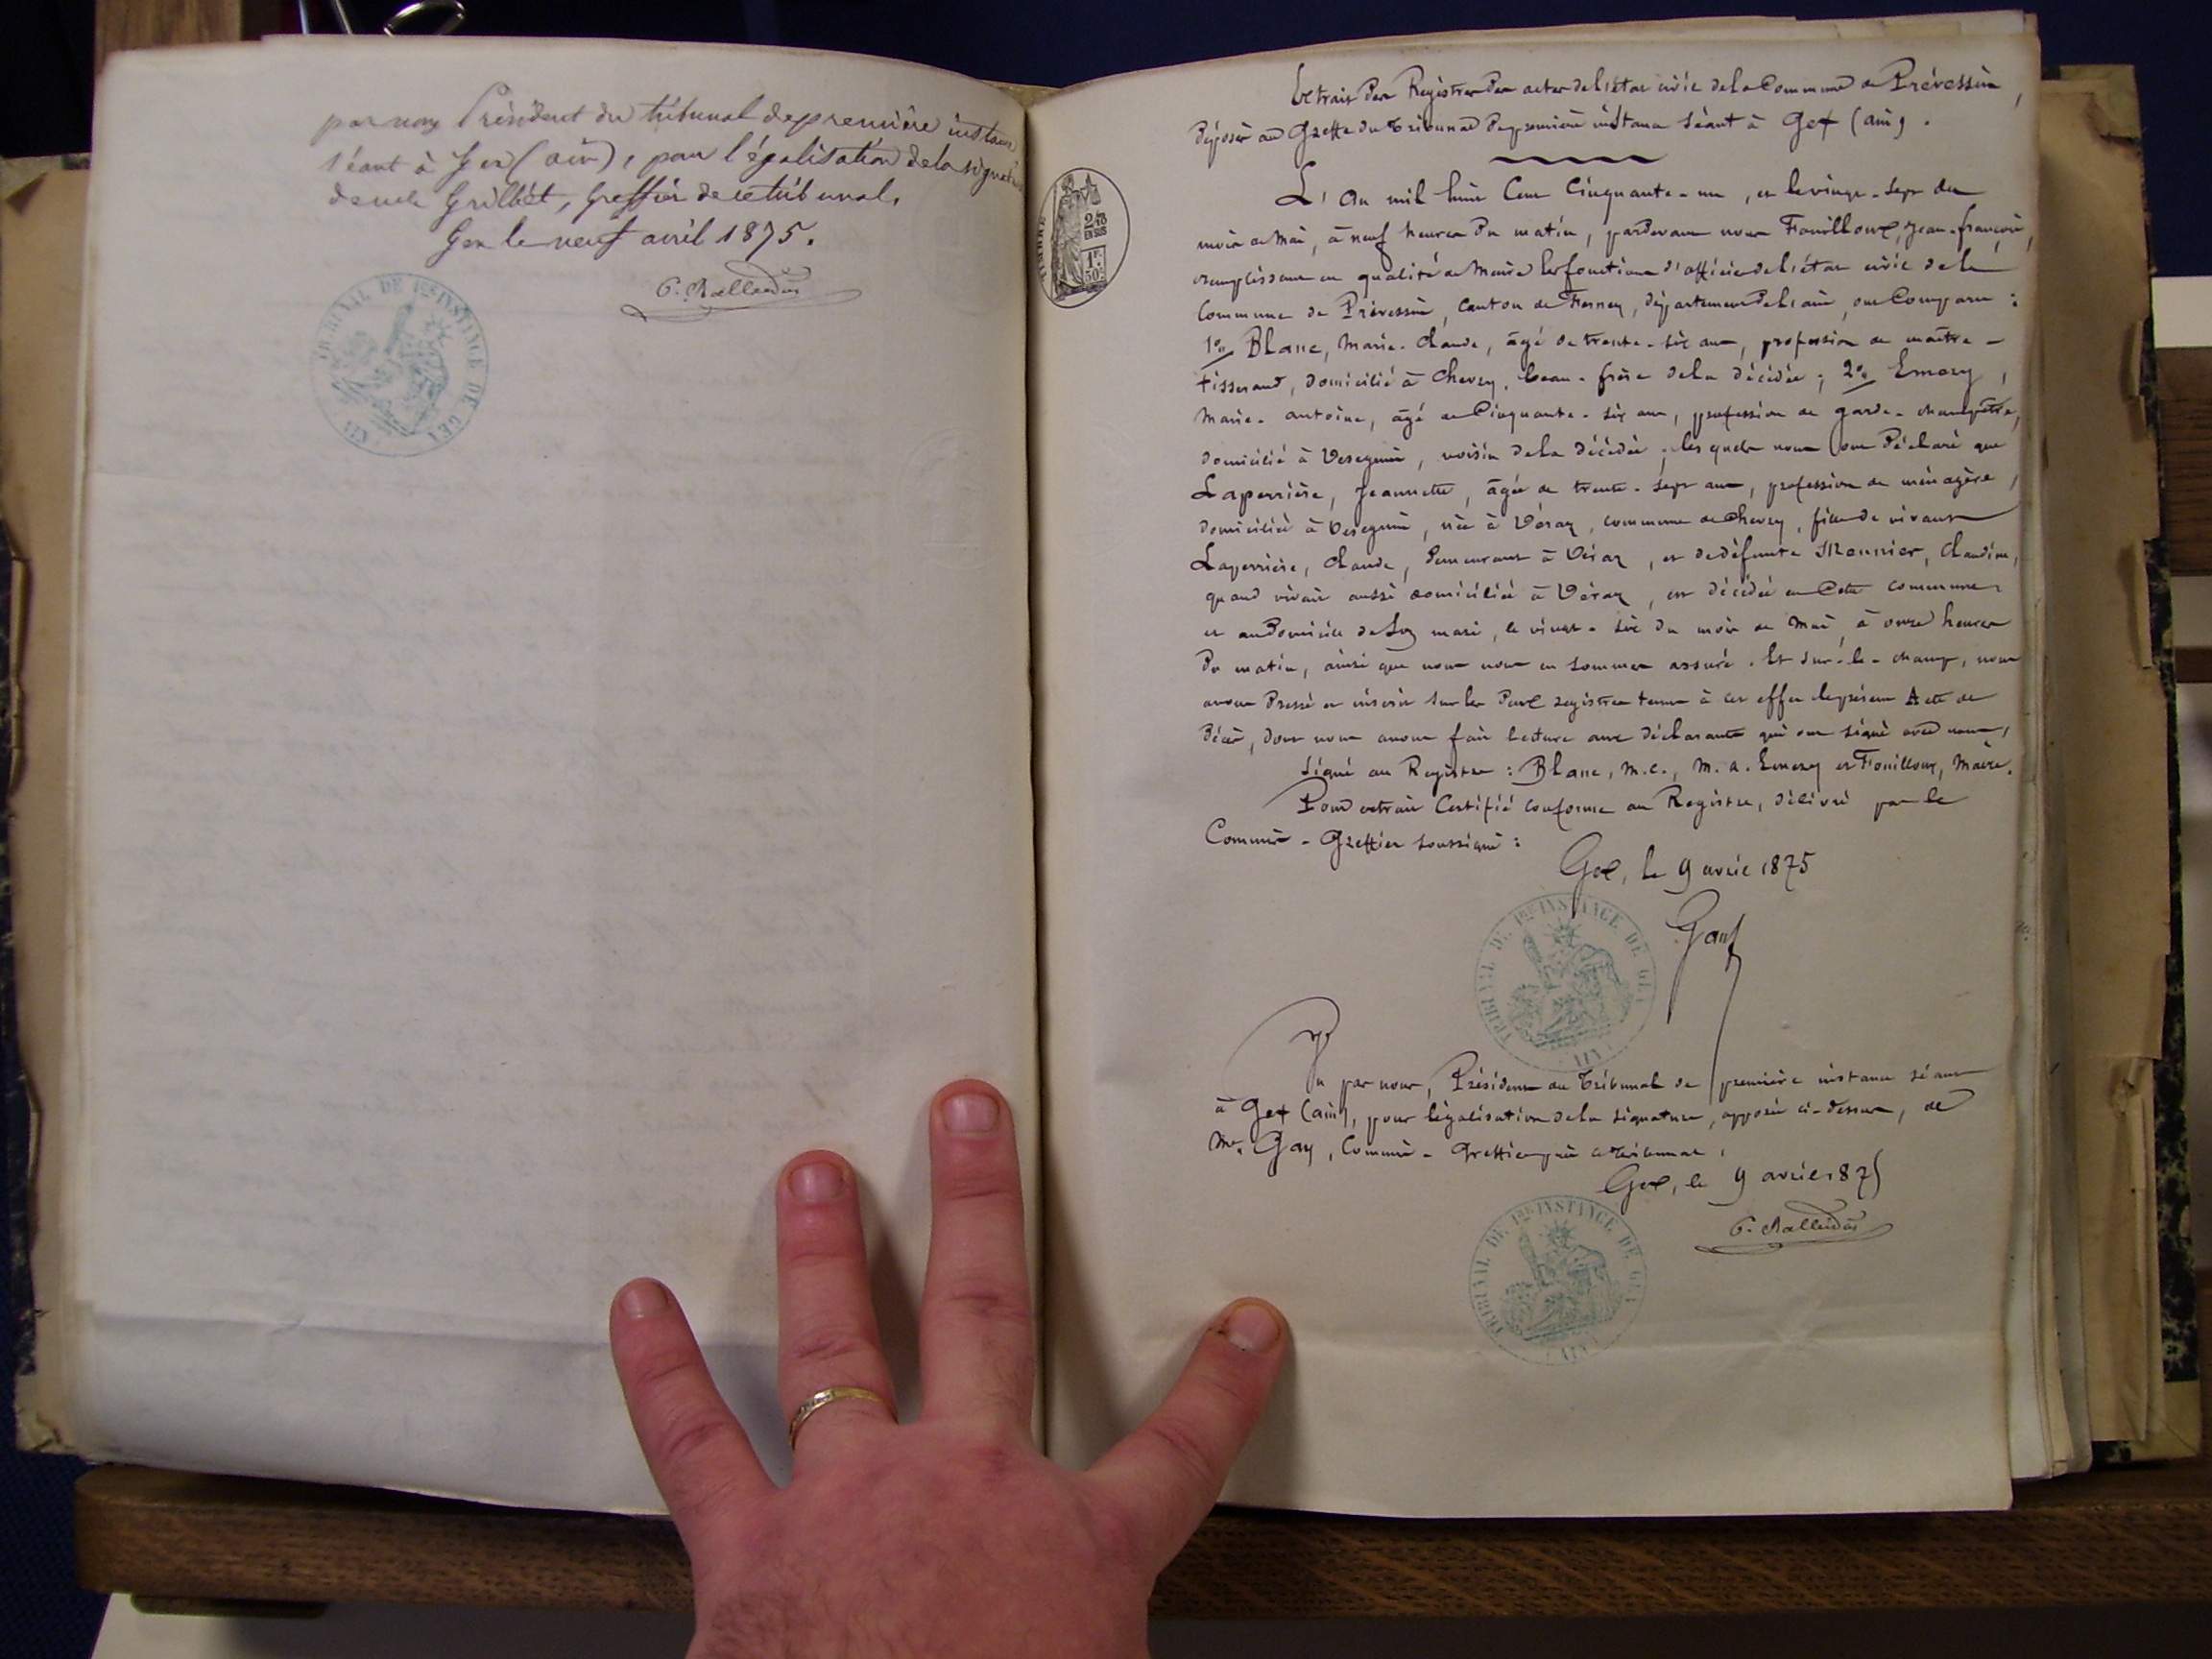 par nous Président du tribunal de première instance
séant à Gex (ain), pour légalisation de la signature
de Grilbet, Greffier de ce tribunal.
Gex le neuf avril 1875.
TRIBUNAL DE 1ere INSTANCE DE GEX
Extrait des Registres des actes de l'état civil de la Commune de Prévessin,
déposés au Greffe du Tribunal de première instance séant à Gex (ain).
2/10
EN SUS
1F.
50c
L'An mil huit Cent Cinquante-un, et le vingt-sept du
mois de Mai, à neuf heures du matin, pardevant nous Fouilloux, Jean-françois,
remplissant en qualité de Maire les fonctions d'officier de l'état civil de la
Commune de Prévessin, Canton de Ferney, département de l'ain, ont Comparu :
1o. Blanc, Marie-Claude, âgé de trente-six ans, profession de maître-
tisserand, domicilié à Chevry, beau-frère de la décédée ; 2o. Emery,
Marie-antoine, âgé de Cinquante-six ans, profession de garde-champêtre,
domicilié à Vesegnin, voisin de la décédée ; les quels nous ont déclaré que
Laperrière, Jeannette, âgée de trente-sept ans, profession de ménagère,
domiciliée à Vesegnin, née à Véraz, commune de Chevry, fille de vivant
Laperrière, Claude, demeurant à Véraz, et de défunte Meunier, Claudine,
quand vivait aussi domiciliée à Véraz, est décédée en Cette commune
et au Domicile de Son mari, le vingt-six du mois de Mai, à onze heures
du matin, ainsi que nous nous en sommes assuré. Et sur-le-champ, nous
avons dressé et inscrit sur les deux registres tenus à cet effet le présent Acte de
décès, dont nous avons fait lecture aux déclarants qui ont signé avec nous,
Signé au Registre : Blanc, M.C., M. A. Emery et Fouilloux, Maire.
Pour extrait Certifié conforme au Registre, délivré par le
Commis-Greffier soussigné :
Gex, le 9 avril 1875
Gay
TRIBUNAL DE 1ere INSTANCE DE GEX
AIN
Vu par nous, Président du Tribunal de première instance séant
à Gex (ain), pour légalisation de la signature, apposée ci-dessus, de
Mr. Gay, Commis-Greffier près ce Tribunal.
Gex, le 9 avril 1875
TRIBUNAL DE 1ere INSTANCE DE GEX
AIN